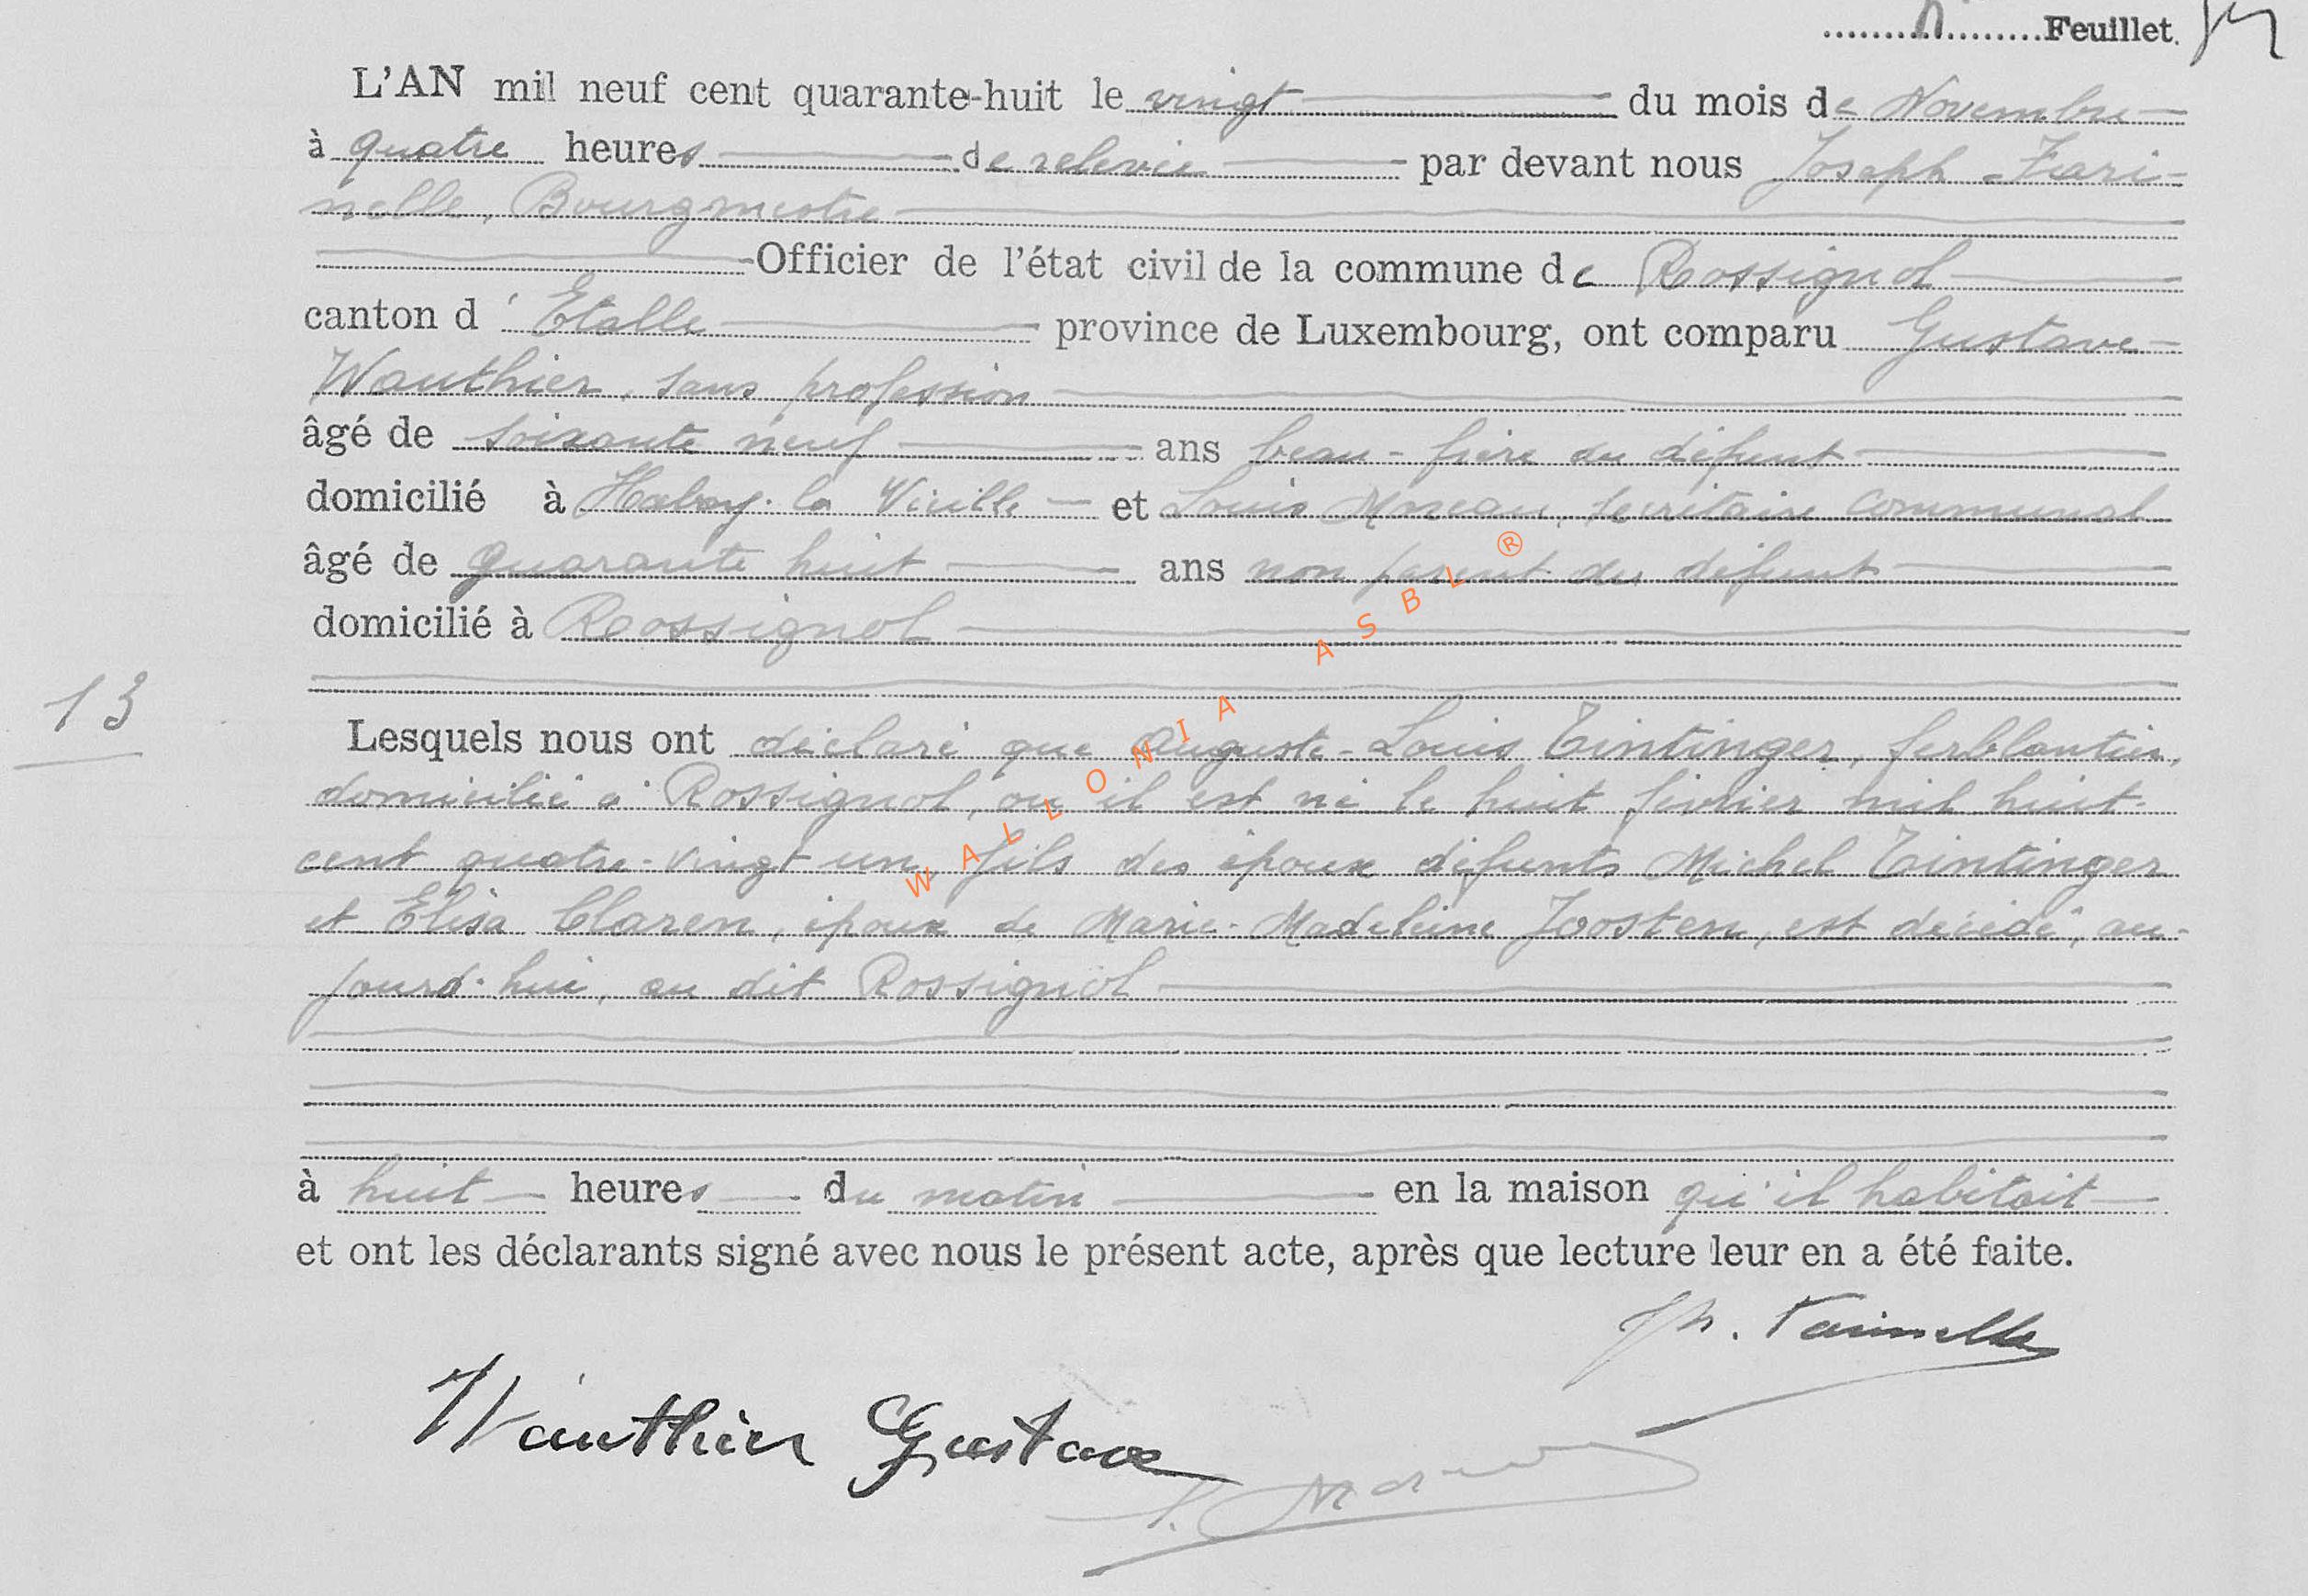 Feuillet.
L'AN mil neuf cent quarante-huit le vingt du mois de Novembre
à quatre heures de relevée par devant nous Joseph Fari-
nelle, Bourgmestre
Officier de l'état civil de la commune de Rossignol
canton d'Etalle province de Luxembourg, ont comparu Gustave
Wauthier, sans profession
âgé de soixante neuf ans beau-frère du défunt
domicilié à Habay-la Vieille et Louis secrétaire communal
âgé de quarante huit ans non parent du défunt
domicilié à Rossignol
13
Lesquels nous ont déclaré que Auguste-Louis Tintinger, ferblantier,
domicilié à Rossignol, ou il est né le huit février mil huit-
cent quatre-vingt-un, fils des époux défunts Michel Tintinger
et Elisa Claren, époux de Marie-Madeleine Joosten, est décédé, au-
jourd'hui, au dit Rossignol
à huit heures du matin en la maison qu'il habitait
et ont les déclarants signé avec nous le présent acte, après que lecture leur en a été faite.
Jh. Farinelle
Wauthier Gustave
WALLONIA ASBL ®